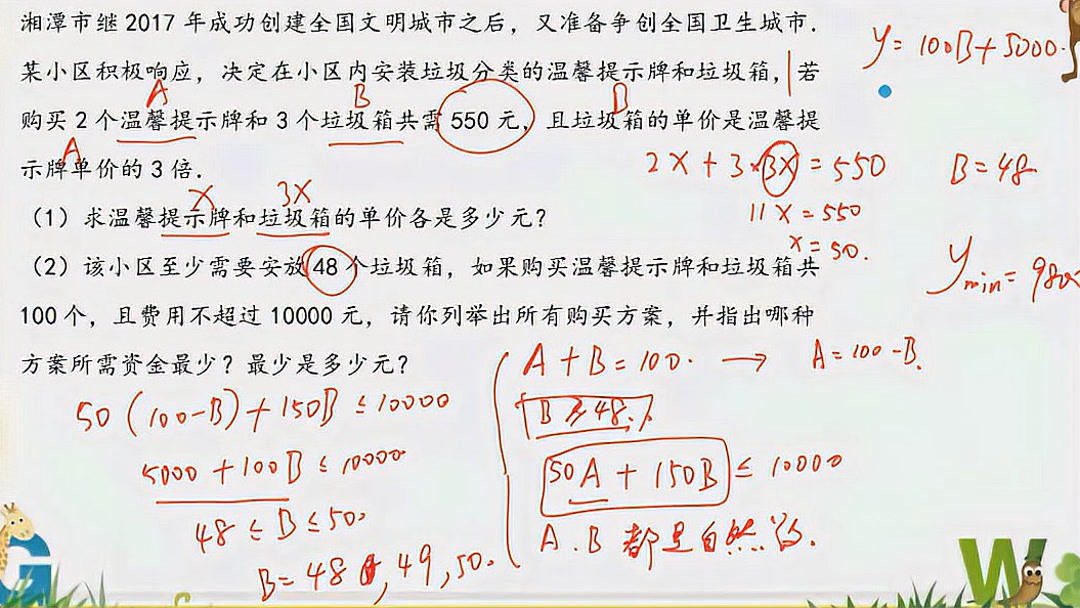 湘潭市继 2017 年成功创建全国文明城市之后，又准备争创全国卫生城市．
某小区积极响应，决定在小区内安装垃圾分类的温馨提示牌和垃圾箱，若
A B B
购买 2 个温馨提示牌和 3 个垃圾箱共需 550 元，且垃圾箱的单价是温馨提
A
示牌单价的 3 倍．
x 3x
（1）求温馨提示牌和垃圾箱的单价各是多少元？
（2）该小区至少需要安放 48 个垃圾箱，如果购买温馨提示牌和垃圾箱共
100 个，且费用不超过 10000 元，请你列举出所有购买方案，并指出哪种
方案所需资金最少？最少是多少元？
y = 100B + 5000.
2x + 3×3x = 550
11x = 550
x = 50.
B = 48
ymin = 980
A + B = 100. → A = 100 - B.
B ≥ 48.
50A + 150B ≤ 10000
A.B 都是自然数.
50(100-B) + 150B ≤ 10000
5000 + 100B ≤ 10000
48 ≤ B ≤ 50.
B = 48, 49, 50.
G
W